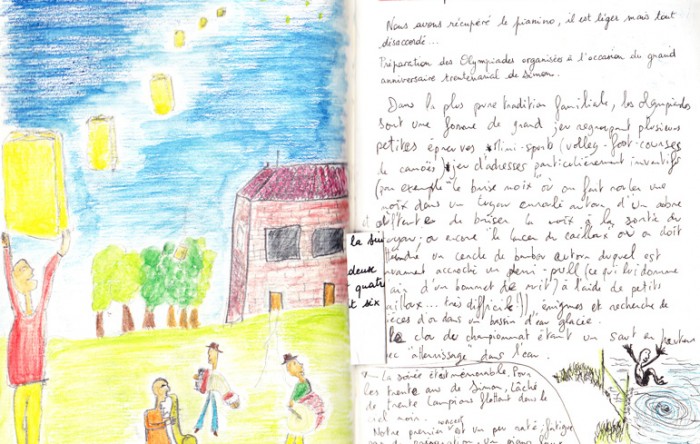 Nous avons récupéré le pianino, il est léger mais tout
désaccordé...
Préparation des Olympiades organisées à l'occasion du grand
anniversaire trentenarial de Simon.
Dans la plus pure tradition familiale, les olympiades
sont une forme de grand jeu regroupant plusieurs
petites épreuves Mini-sports (volley-foot-courses
de canoës) jeu d'adresses particulièrement inventifs
(par exemple "le brise noix" où on fait rouler une
noix dans un tuyau enroulé autour d'un arbre
de briser la noix à la sortie du
ou encore "le lancer du cailloux" où on doit
un cercle de bambou autour duquel est
accroché un demi-pull (ce qui lui donne
d'un bonnet de nuit) à l'aide de petits
... très difficile!), énigmes et recherche de
d'or dans un bassin d'eau glacée.
le clou du championnat étant un saut en hauteur
avec atterrissage dans l'eau.
la sui
deux
quatr
t six
La soirée est mémorable. Pour
les trente ans de Simon, lâché
de trente lampions flottant dans le
ciel noir.
Notre premier est un peu raté: fatigue